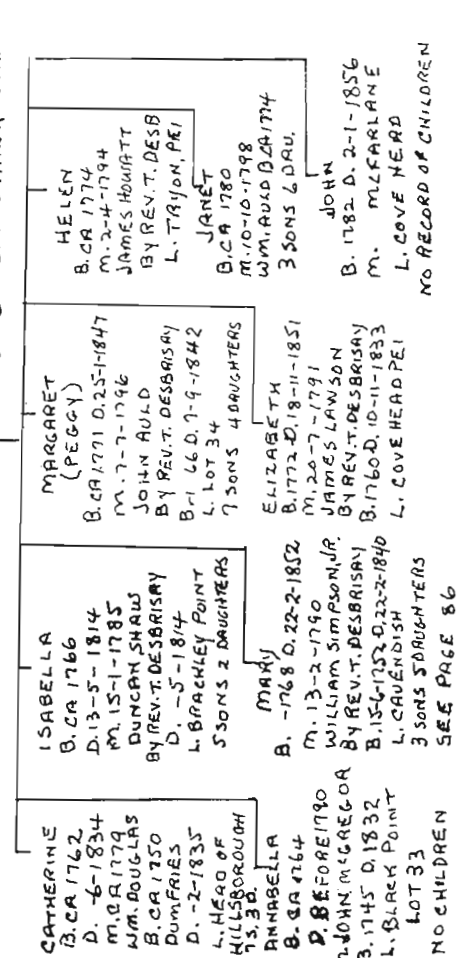 CATHERINE
B. CA 1762
D. -6-1834
M. CA 1779
WM. DOUGLAS
B. CA 1750
DUMFRIES
D. -2-1835
L. HEAD OF
HILLSBOROUGH
7 S. 3 D.
ANNABELLA
B. CA 1764
D. BEFORE 1790
JOHN McGREGOR
B. 1745 D. 1832
L. BLACK POINT
LOT 33
NO CHILDREN
ISABELLA
B. CA 1766
D. 13-5-1814
M. 15-1-1785
DUNCAN SHAW
BY REV. T. DESBRISAY
D. -5-1814
L. BRACKLEY POINT
5 SONS 2 DAUGHTERS
MARY
B. -1768 D. 22-2-1852
M. 13-2-1790
WILLIAM SIMPSON, JR.
BY REV. T. DESBRISAY
B. 15-6-1752 D. 22-2-1840
L. CAVENDISH
3 SONS 5 DAUGHTERS
SEE PAGE 86
MARGARET
(PEGGY)
B. CA 1771 D. 25-1-1847
M. 7-7-1796
JOHN AULD
BY REV. T. DESBRISAY
B-1 66 D. 7-9-1842
L. LOT 34
7 SONS 4 DAUGHTERS
ELIZABETH
B. 1772 D. 18-11-1851
M. 20-7-1791
JAMES LAWSON
BY REV. T. DESBRISAY
B. 1760 D. 10-11-1833
L. COVE HEAD PEI
HELEN
B. CA 1774
M. 2-4-1794
JAMES HOWATT
BY REV. T. DESB
L. TRYON, PEI
JANET
B. CA 1780
M. 10-10-1798
WM. AULD B CA 1774
3 SONS 6 DAU.
JOHN
B. 1782 D. 2-1-1856
M. MCFARLANE
L. COVE HEAD
NO RECORD OF CHILDREN